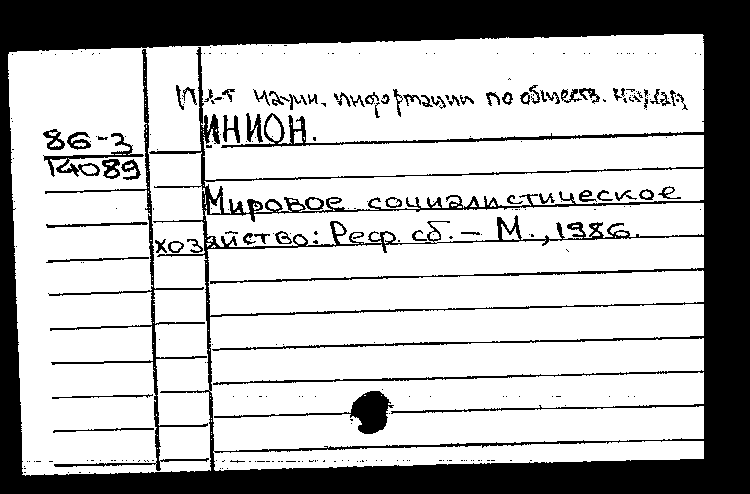 Ин-т научн. информации по обществ. наукам
ИНИОН.
86-3
14089
Мировое социалистическое
хозяйство: Реф. сб. - М., 1986.